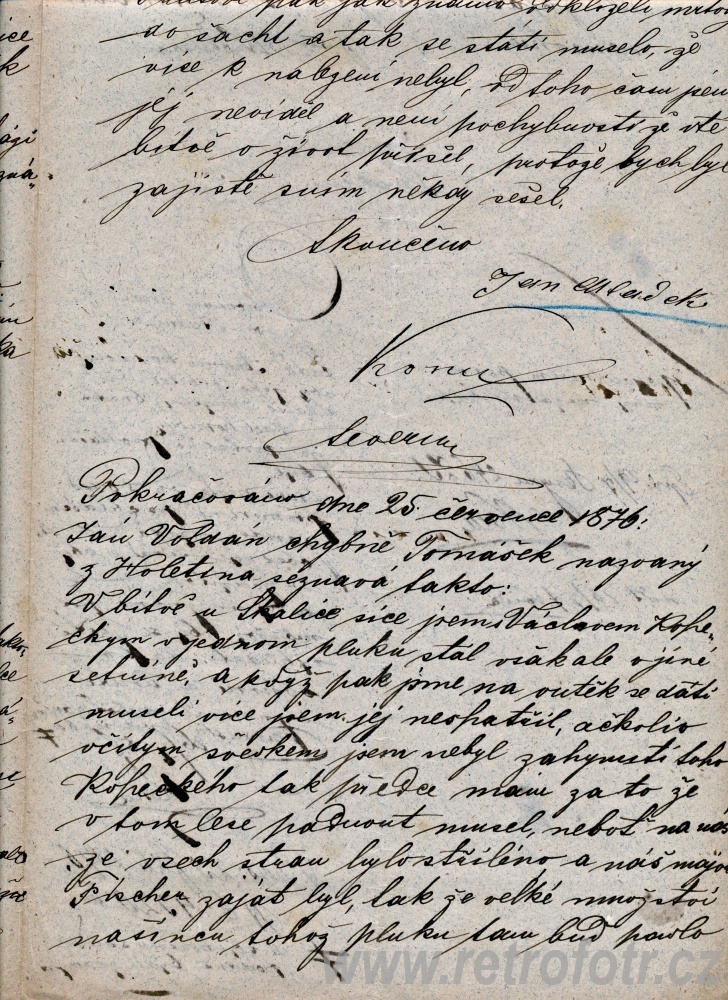 pak jak známo odklozeli mrtvo
do šacht a tak se státi muselo, že
více k nalezení nebyl, od toho času jsem
jej neviděl a není pochybnosti že v té
bitvě o život přišel, protože bych byl
zajistě s ním někdy sešel.
Skončeno
Jan
Severin
Pokračováno dne 25 července 1876:
Jan Voldán chybně Tomášek nazvaný
z Holetína seznavá takto:
V bitvě u Skalice sice jsem s Václavem Kope-
ckym v jednom pluku stál však ale v jiné
setnině, a když pak jsme na outěk se dáti
museli více jsem jej nespatřil, ačkoliv
očitym svědkem jsem nebyl zahynutí toho
Kopeckého tak předce mám za to že
v tom lese padnout musel, neboť na nás
ze všech stran bylo stříleno a náš major
Fischer zajat byl, tak že velké množství
našincu tohož pluku tam buď padlo
www.retrofotr.cz